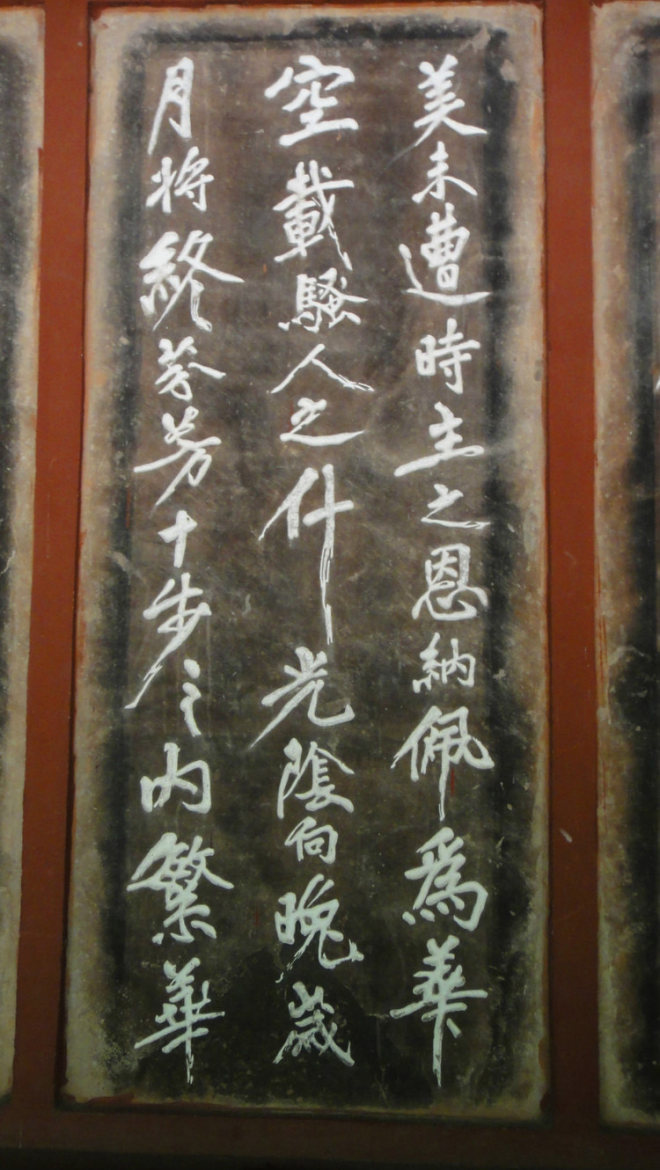 美未遭時主之恩納佩為華
空載騷人之什光陰向晚歲
月將終芬芳十步之內繁華